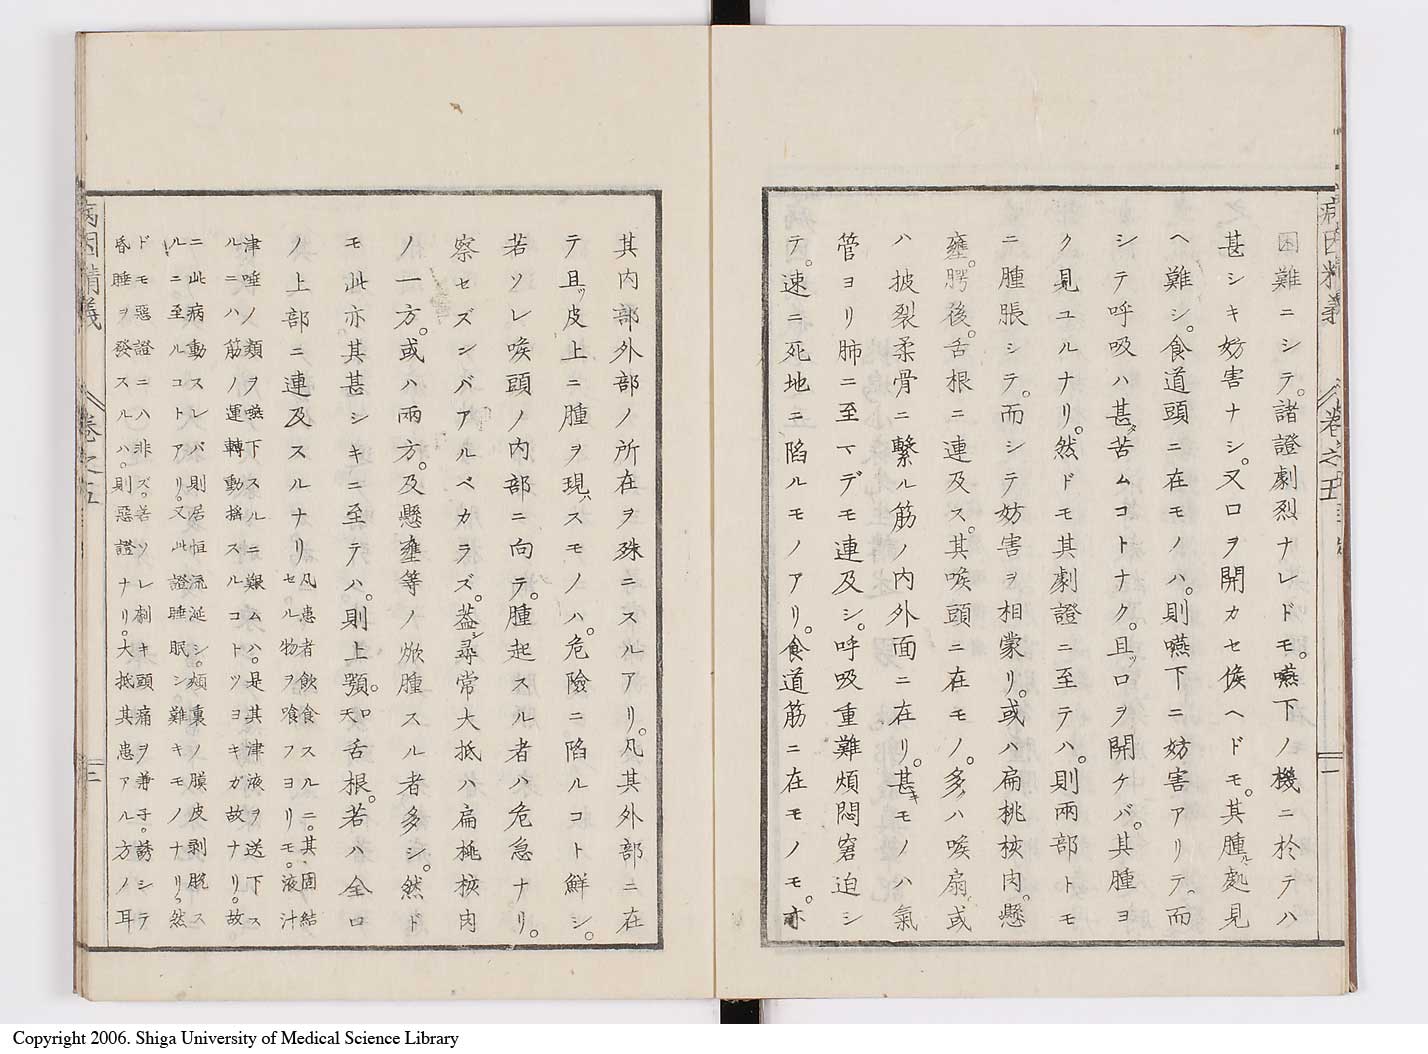 病因精義
卷之五
一
困難ニシテ。諸證劇烈ナレドモ。嚥下ノ機ニ於テハ
甚シキ妨害ナシ。又口ヲ開カセ候ヘドモ。其腫ル處見
ヘ難シ。食道頭ニ在モノハ。則嚥下ニ妨害アリテ。而
シテ呼吸ハ甚ダ苦ムコトナク。且ツ口ヲ開ケバ。其腫ヨ
ク見ユルナリ。然ドモ其劇證ニ至テハ。則兩部トモ
ニ腫脹シテ。而シテ妨害ヲ相蒙リ。或ハ扁桃核肉。懸
壅。腭後。舌根ニ連及ス。其喉頭ニ在モノ。多ハ喉扇或
ハ披裂柔骨ニ繫ル筋ノ内外面ニ在リ。甚キモノハ氣
管ヨリ肺ニ至マデモ連及シ。呼吸重難煩悶窘迫シ
テ。速ニ死地ニ陷ルモノアリ。食道筋ニ在モノモ。亦
其内部外部ノ所在ヲ殊ニスルアリ。凡其外部ニ在
テ且ツ皮上ニ腫ヲ現ハスモノハ。危險ニ陷ルコト鮮シ。
若ソレ喉頭ノ内部ニ向テ。腫起スル者ハ危急ナリ。
察セズンバアルベカラズ。蓋シ尋常大抵ハ扁桃核肉
ノ一方。或ハ兩方。及懸壅等ノ焮腫スル者多シ。然ド
モ此亦其甚シキニ至テハ。則上顎。口天舌根。若ハ全口
ノ上部ニ連及スルナリ凡患者飲食スルニ。其固結
セル物ヲ喰フヨリモ。液汁
津唾ノ類ヲ嚥下スルニ艱ムハ。是其津液ヲ送下ス
ルニハ筋ノ運轉動搖スルコトツヨキガ故ナリ。故
ニ此病動スレバ則居恒流涎シ。頰裏ノ膜皮剥脱ス
ルニ至ルコトアリ。又此證睡眠シ難キモノナリ。然
ドモ惡證ニハ非ズ。若ソレ劇キ頭痛ヲ兼子。誘シテ
昏睡ヲ發スルハ。則惡證ナリ。大抵其患アル方ノ耳
病因精義
卷之五
二
Copyright 2006. Shiga University of Medical Science Library